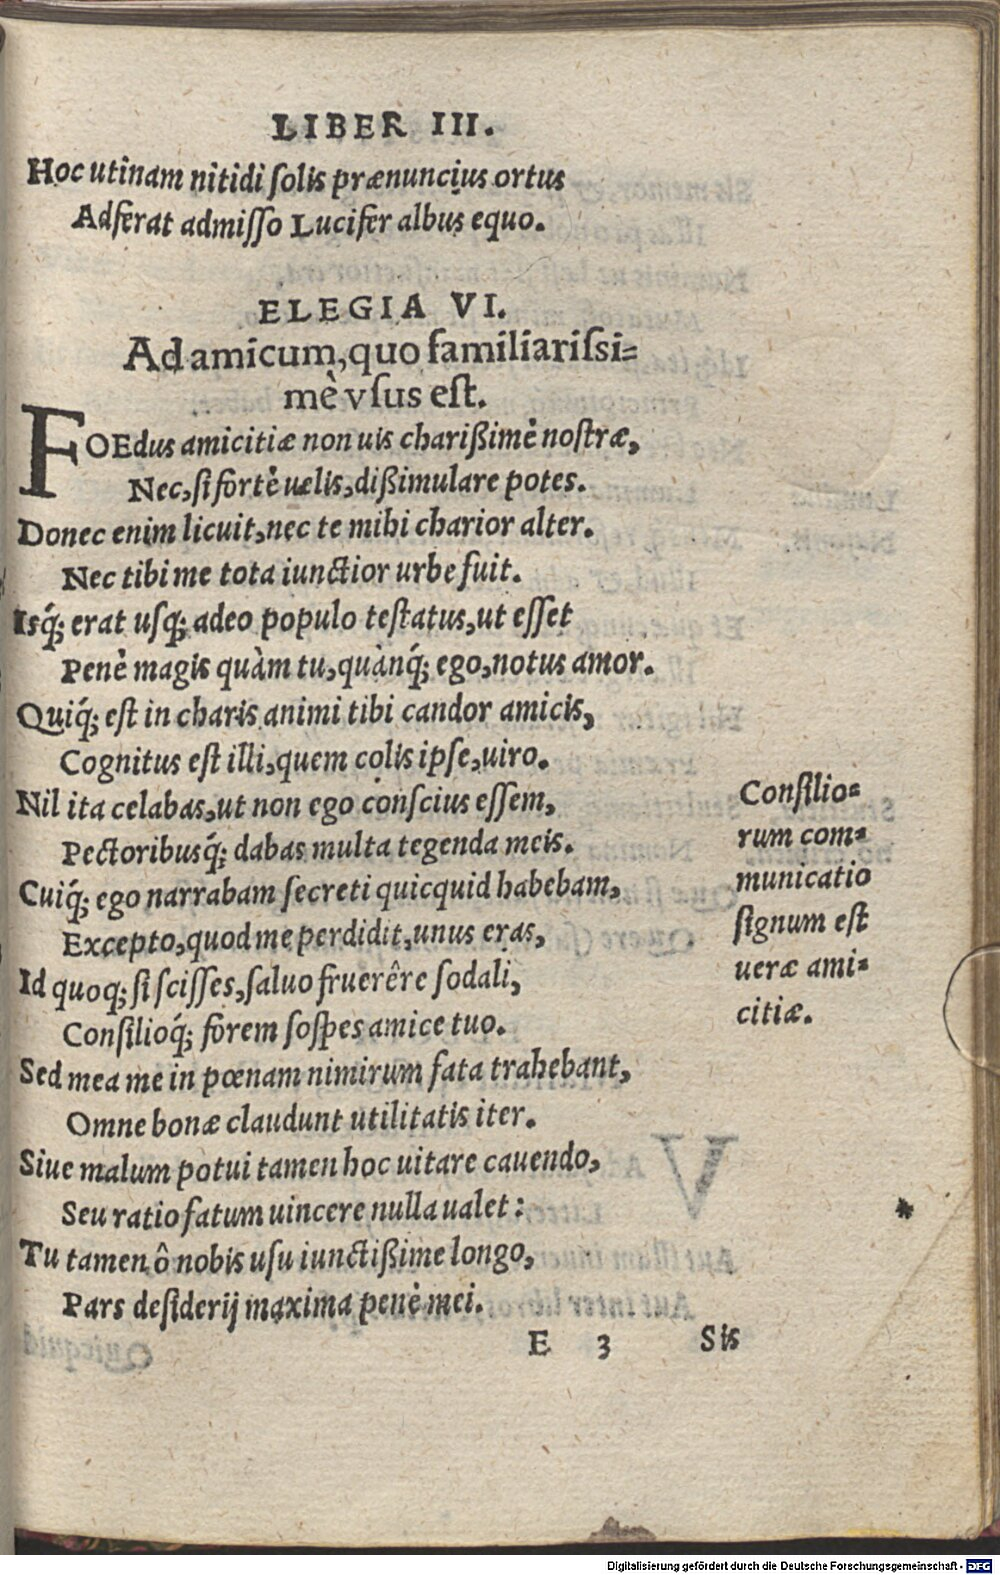 LIBER III.
Hoc utinam nitidi ſolis prænuncius ortus
Adferat admiſſo Lucifer albus equo.
ELEGIA VI.
Ad amicum, quo familiariſsi=
mè vſus eſt.
FOEdus amicitiæ non uis charißimè noſtræ,
Nec, ſi fortè uelis, dißimulare potes.
Donec enim licuit, nec te mihi charior alter.
Nec tibi me tota iunctior urbe fuit.
Isq́; erat uſq; adeo populo teſtatus, ut eſſet
Penè magis quàm tu, quànq́; ego, notus amor.
Quiq́; eſt in charis animi tibi candor amicis,
Cognitus eſt illi, quem colis ipſe, uiro.
Nil ita celabas, ut non ego conſcius eſſem,
Pectoribusq́; dabas multa tegenda meis.
Cuiq́; ego narrabam ſecreti quicquid habebam,
Excepto, quod me perdidit, unus eras,
Id quoq; ſi ſciſſes, ſaluo fruerêre ſodali,
Conſilioq́; forem ſoſpes amice tuo.
Sed mea me in pœnam nimirum fata trahebant,
Omne bonæ claudunt utilitatis iter.
Siue malum potui tamen hoc uitare cauendo,
Seu ratio fatum uincere nulla ualet:
Tu tamen ô nobis uſu iunctißime longo,
Pars deſiderij maxima penè mei.
Conſilio=
rum com=
municatio
ſignum eſt
ueræ ami=
citiæ.
*
E 3 Sis
Digitalisierung gefördert durch die Deutsche Forschungsgemeinschaft - DFG